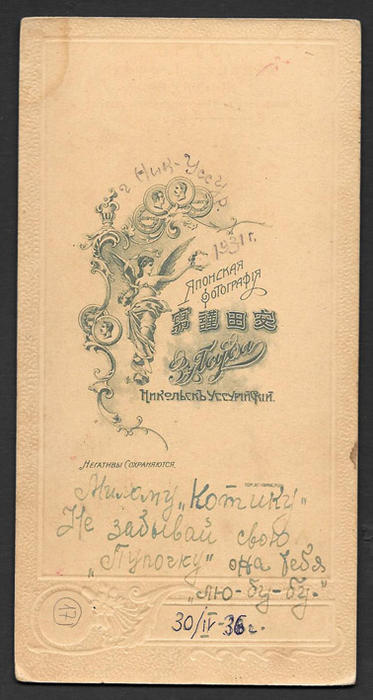 г Ник-Уссур.
1931 г.
Японская
Фотографія
寫護田安
Никольскъ Уссурійскій.
Негативы Сохраняются.
Милому „Котику"
Не забывай свою
„Пупочку" она тебя
„лю-бу-бу."
17
30/IV-36 г.